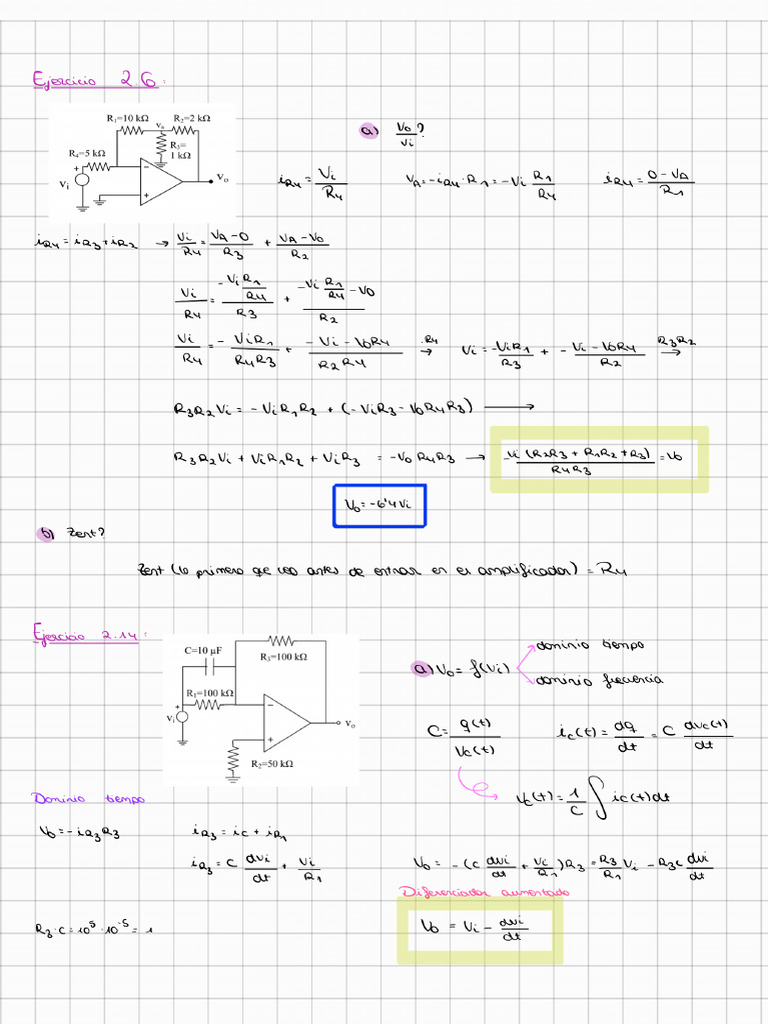 Ejercicio 2.6:
R₁=10 kΩ
R₂=2 kΩ
vₐ
R₃=
1 kΩ
R₄=5 kΩ
+
vᵢ
−
+
vₒ
a) Vo/Vi?
iR4 = Vi/R4
VA = -iR4·R1 = -Vi R1/R4
iR4 = (0-VA)/R1
iR4 = iR3 + iR2 → Vi/R4 = (VA-0)/R3 + (VA-Vo)/R2
Vi/R4 = (-ViR1/R4)/R3 + (-Vi R1/R4 - VO)/R2
Vi/R4 = - ViR1/R4R3 + (-Vi - VoR4)/R2R4 ·R4→ Vi = -ViR1/R3 + - (Vi - VoR4)/R2 R3R2→
R3R2Vi = -ViR1R2 + (-ViR3 - VoR4R3) →
R3R2Vi + ViR1R2 + ViR3 = -VoR4R3 → -Vi (R2R3 + R1R2 + R3)/R4R3 = Vo
Vo = -6'4Vi
b) Zent?
Zent (lo primero que veo antes de entrar en el amplificador) = R4
Ejercicio 2.14:
C=10 µF
R₃=100 kΩ
R₁=100 kΩ
+
vᵢ
−
+
vₒ
R₂=50 kΩ
a) Vo = f(Vi)
dominio tiempo
dominio frecuencia
C = q(t)/Vc(t)
ic(t) = dq/dt = C dvc(t)/dt
Vc(t) = 1/C ∫ ic(t)dt
Dominio tiempo
Vo = -iR3R3
iR3 = ic + iR1
iR3 = C dvi/dt + Vi/R1
Vo = -(C dvi/dt + Vi/R1)R3 = R3/R1 Vi - R3C dvi/dt
Diferenciador aumentado
R3·C = 10⁵·10⁻⁵ = 1
Vo = Vi - dvi/dt